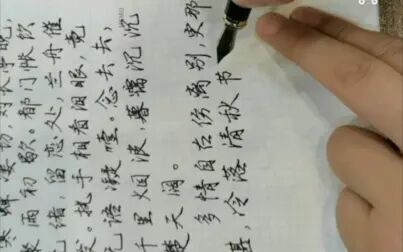 寒蝉凄切,对长亭晚,
骤雨初歇。都门帐饮
无绪,留恋处,兰舟催
发。执手相看泪眼,竟
无语凝噎。念去去,
千里烟波,暮霭沉沉
楚天阔。
多情自古伤离别,更那
堪,冷落清秋节